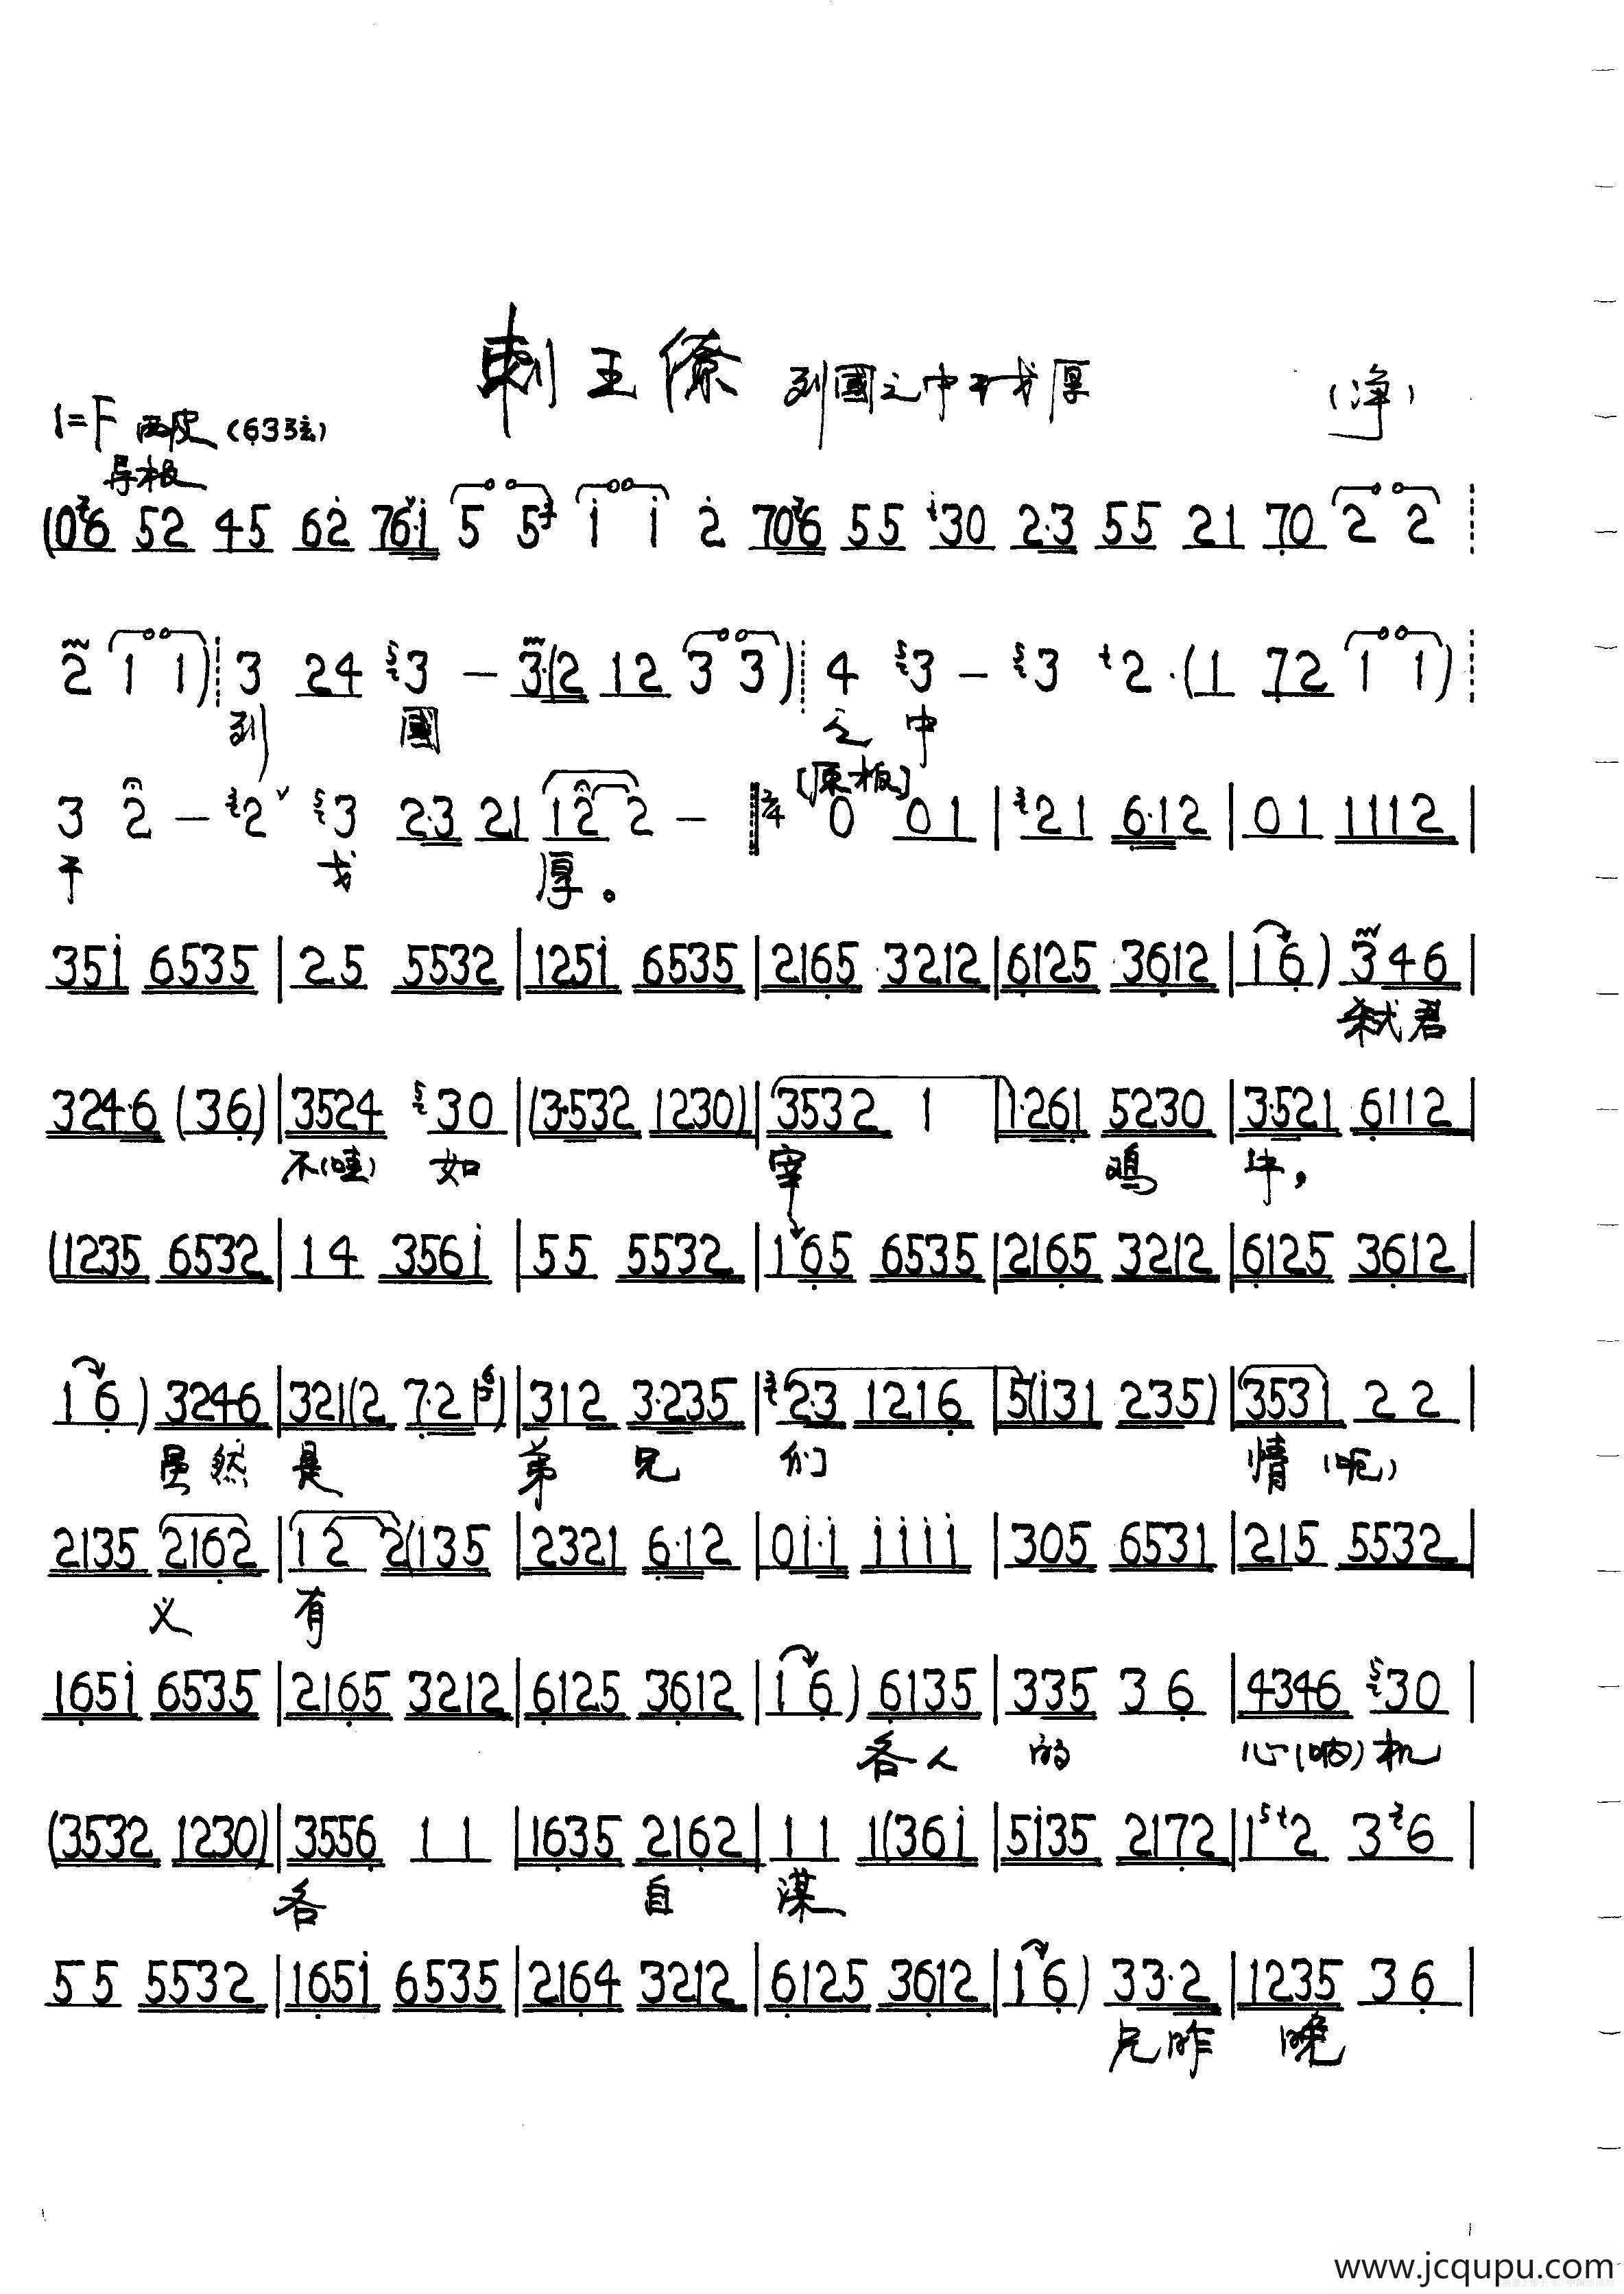 刺王僚 列國之中干戈厚 (净)
1=F 西皮 (63弦)
导板
(06 52 45 62 76·1 5 5 1 1 2 706 55 30 2·3 55 21 70 2 2
2 1 1) 3 24 3 — 3·(2 12 3 3) 4 3 — 3 2·(1 72 1 1)
列 國 之 中
[原板]
3 2 — 2 3 2·3 21 12 2 — 2/4 0 01 | 21 6·12 | 01 1112 |
干 戈 厚。
351 6535 | 2·5 5532 | 1251 6535 | 2165 3212 | 6125 3612 | 16) 346 |
弑君
324·6 (36) | 3524 30 | (3·532 1230) | 3532 1 | 1·261 5230 | 3·521 6112 |
不(哇) 如 宰 鸡 牛,
(1235 6532 | 14 3561 | 55 5532 | 165 6535 | 2165 3212 | 6125 3612 |
16) 3246 | 321(2 7·21) | 312 3·235 | 2·3 1216 | 5(131 235) | 3531 22 |
虽然 是 弟 兄 们 情 (呃)
2135 2162 | 12 2(135 | 2321 6·12 | 01·1 1111 | 305 6531 | 215 5532 |
义 有
1651 6535 | 2165 3212 | 6125 3612 | 16) 6135 | 335 36 | 4346 30 |
各人 的 心(呐)机
(3532 1230) | 3556 11 | 1635 2162 | 11 1(361 | 5135 2172 | 12 36 |
各 自 谋
55 5532 | 1651 6535 | 2164 3212 | 6125 3612 | 16) 33·2 | 1235 36 |
兄昨 晚
www.jcqupu.com